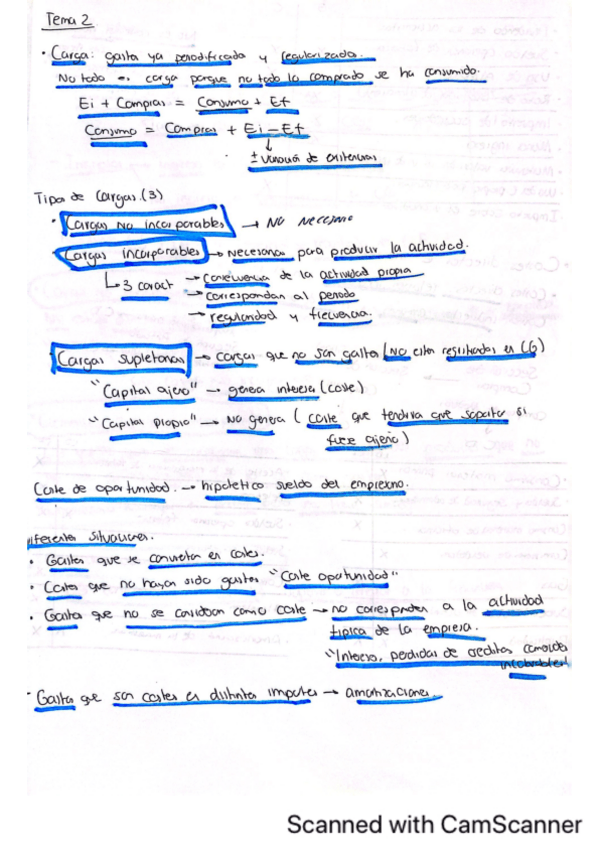 Tema 2
· Carga: gasto ya periodificado y regularizado.
No todo es carga porque no todo lo comprado se ha consumido.
Ei + Compras = Consumo + Ef
Consumo = Compras + Ei - Ef
↓
± Variació de existencias
Tipos de Cargas. (3)
· Cargas No incorporables → No necesario
Cargas incorporables → necesarias para producir la actividad.
↳ 3 caract → Consecuencia de la actividad propia
→ correspondan al periodo
→ regularidad y frecuencia.
Cargas supletorias → cargas que no son gastos (No estan registrados en CG)
"Capital ajeno" → genera interes (coste)
"Capital propio" → No genera ( coste que tendria que soportar si
fuese ajeno )
Coste de oportunidad. → hipotetico sueldo del empresario.
iferentes situaciones.
· Gastos que se convierten en costes.
· Costes que no hayan sido gastos "Coste oportunidad"
· Gastos que no se consideran como coste → no corresponden a la actividad
tipica de la empresa.
"Interes, perdidas de creditos comerciales
incobrables"
· Gastos que son costes en distinto importes → amortizaciones.
Scanned with CamScanner